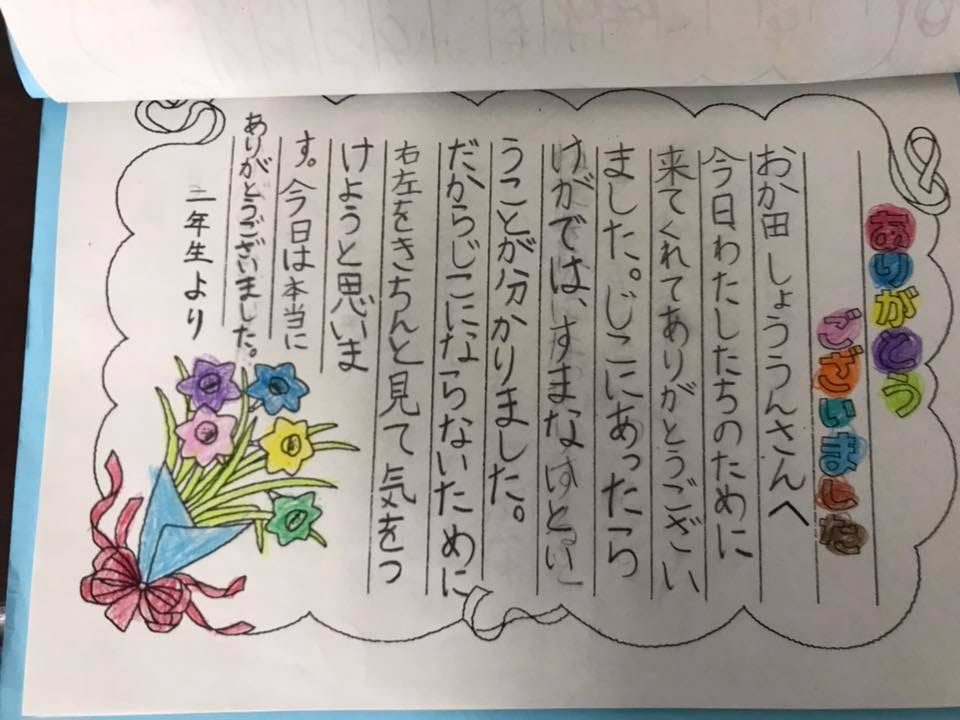 ありがとう
ございました
おか田 しょううんさんへ
今日わたしたちのために
来てくれてありがとうござい
ました。じこにあったら
けがでは、すまなすとい
うことが分かりました。
だからじこにならないために
右左をきちんと見て 気をつ
けようと思いま
す。今日は本当に
ありがとうございました。
二年生より